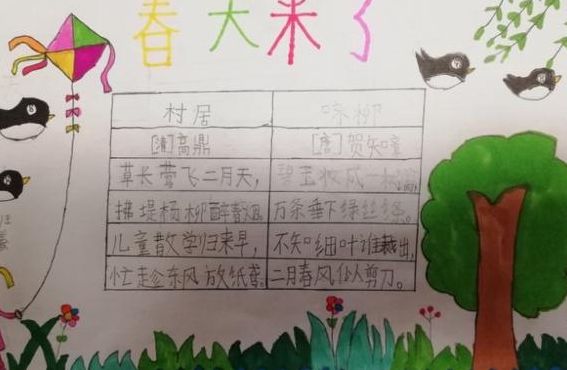 春天来了
村居 咏柳
[清]高鼎 [唐]贺知章
草长莺飞二月天, 碧玉妆成一树高,
拂堤杨柳醉春烟。 万条垂下绿丝绦。
儿童散学归来早, 不知细叶谁裁出,
忙趁东风放纸鸢。 二月春风似剪刀。